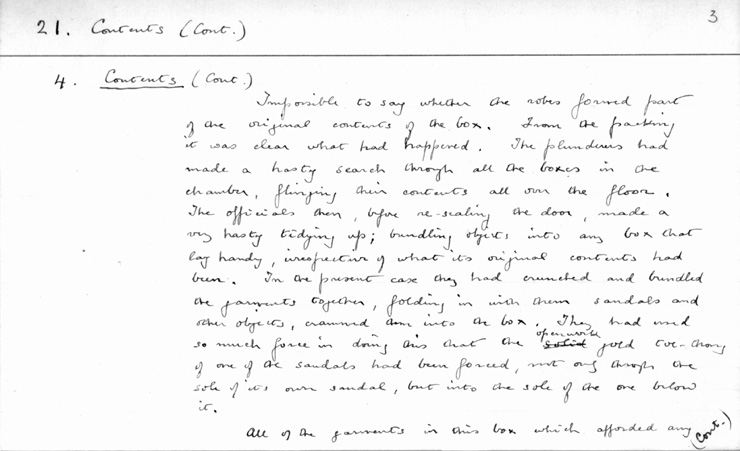 3
21. Contents (Cont.)
4. Contents (Cont.)
Impossible to say whether the robes formed part
of the original contents of the box. From the packing
it was clear what had happened. The plunderers had
made a hasty search through all the boxes in the
chamber, flinging their contents all over the floor.
The officials then, before re-sealing the door, made a
very hasty tidying up; bundling objects into any box that
lay handy, irrespective of what its original contents had
been. In the present case they had crunched and bundled
the garments together, folding in with them sandals and
other objects, crammed them into the box. They had used
so much force in doing this that the solid openwork gold toe-thong
of one of the sandals had been forced, not only through the
sole of its own sandal, but into the sole of the one below
it.
All of the garments in this box which afforded any
(Cont.)